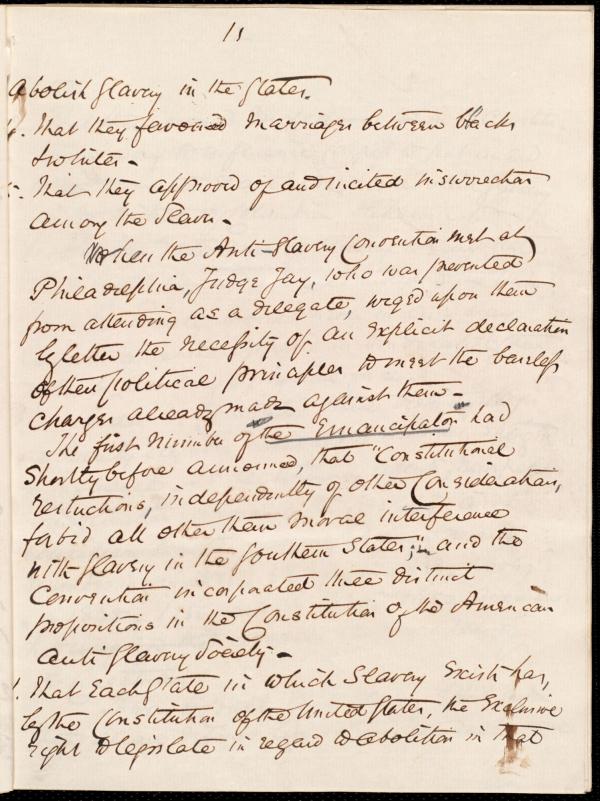 15
abolish slavery in the States.
4. That they favoured marriages between blacks
& whites -
5. That they approved of and incited insurrection
among the slaves.
When the Anti-Slavery Convention met at
Philadelphia, Judge Jay, who was prevented
from attending as a delegate, urged upon them
by letter the necessity of an explicit declaration
of their political principles to meet the baseless
charges already made against them -
The first Number of the Emancipator had
shortly before announced, that "Constitutional
restrictions, independently of other Considerations,
forbid all other than moral interference
with slavery in the Southern States;" and the
Convention incorporated three distinct
propositions in the Constitution of the American
Anti Slavery Society -
1. That Each State in which Slavery Exists has,
by the Constitution of the United States, the Exclusive
right to legislate in regard to abolition in that